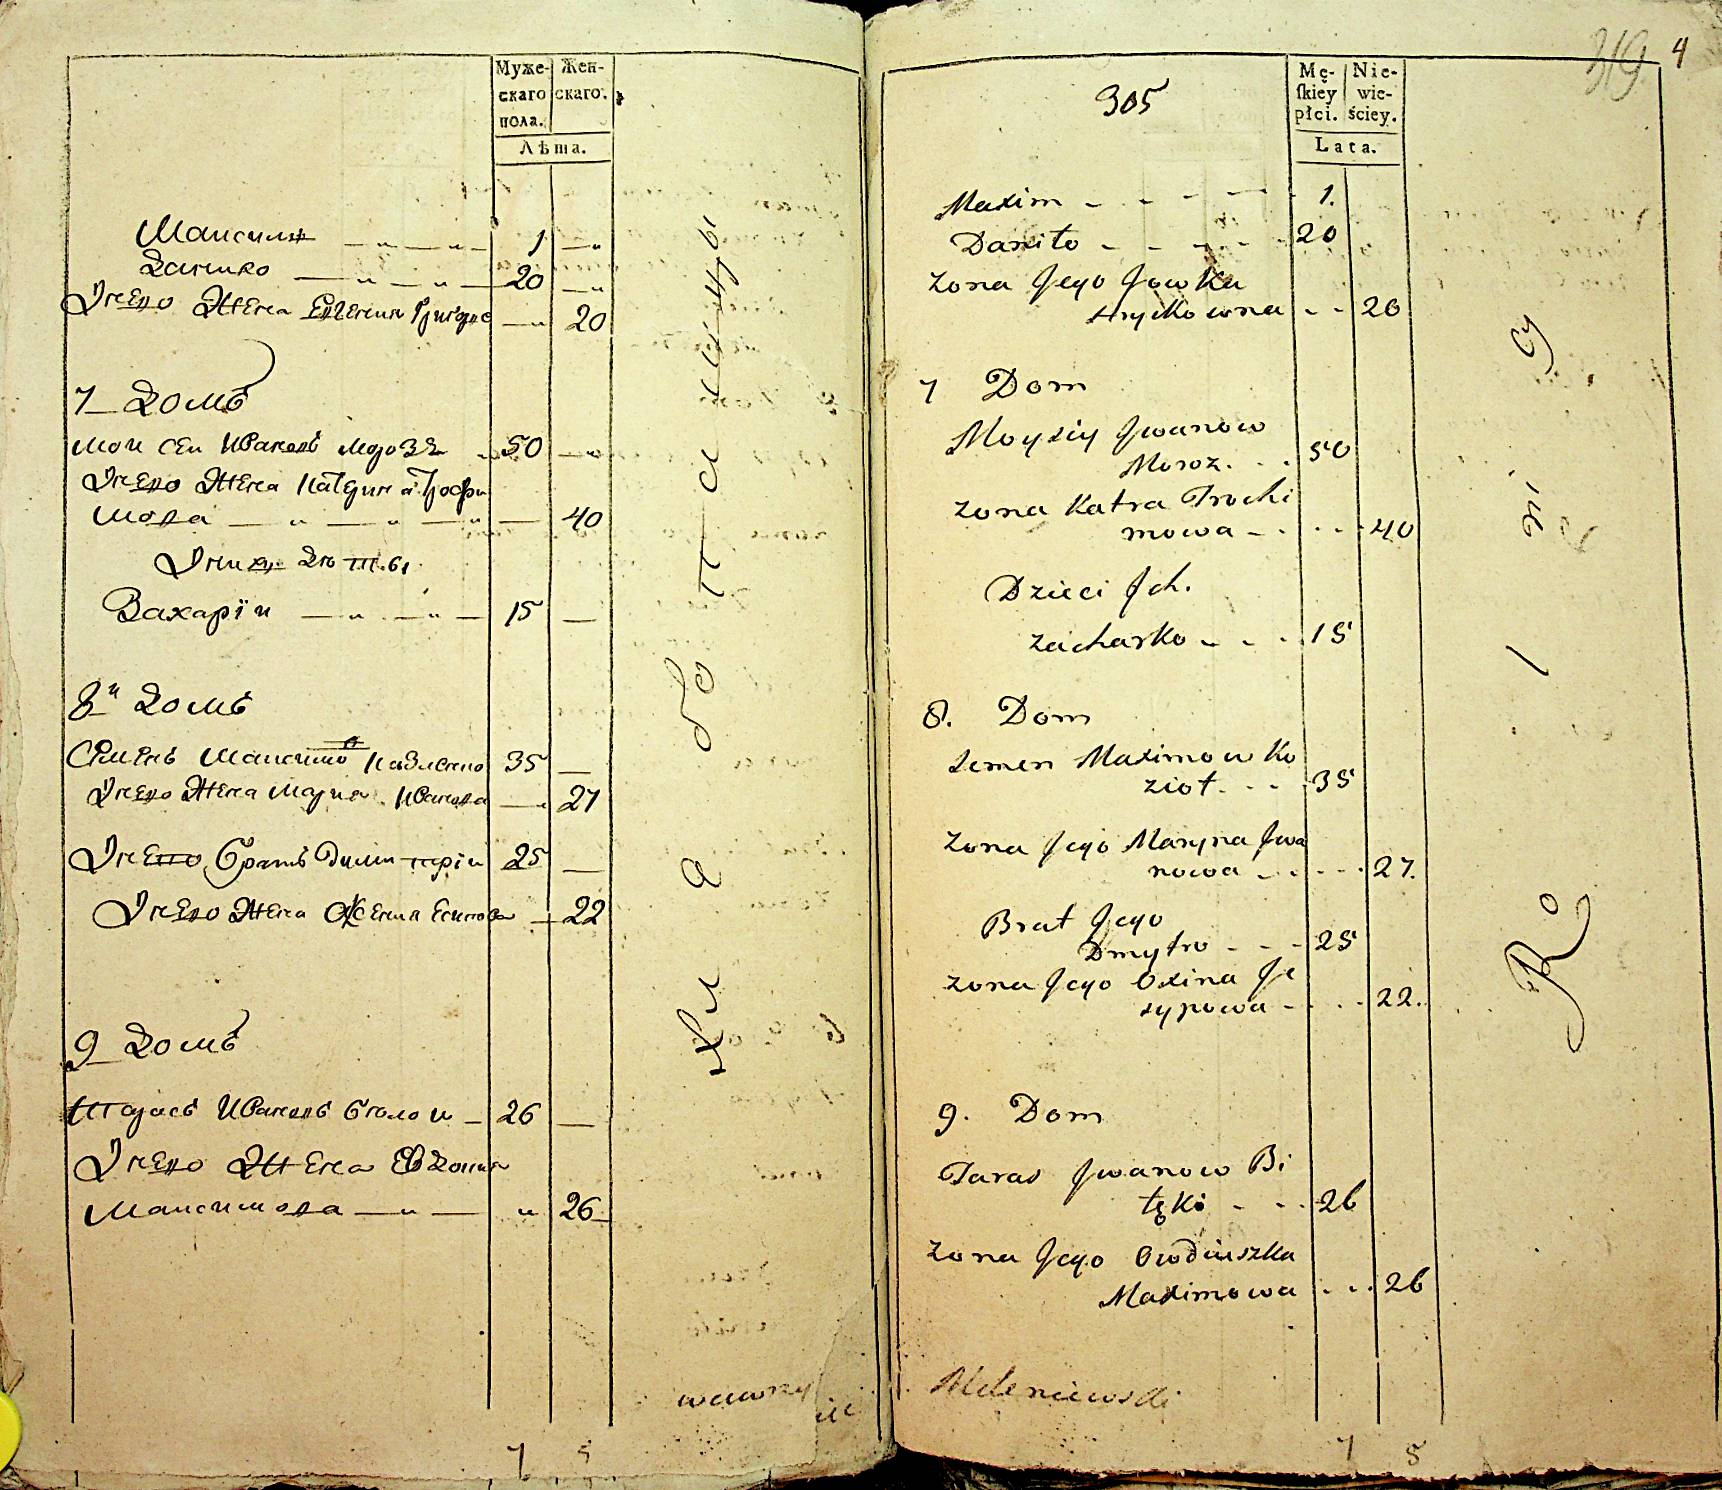 Муже-
скаго
пола.
Жен-
скаго.
Лѣта.
Максимъ 1
Данило 20
Жена Евгения 20
7 Домъ
Мойсей Ивановъ Морозъ 50
Жена Катерина Трофи
мова 40
Захарїй 15
8й Домъ
Семенъ Максимовъ 35
Жена Мария Иванова 27
братъ Димитрїй 25
Жена Ксения Есипова 22
9 Домъ
Тарасъ Ивановъ 26
Жена Евдокия
Максимова 26
305
319
4
Mę-
ſkiey
płci.
Nie-
wie-
ściey.
Lata.
Maxim 1.
Daniło 20
Zona Jego Jowka
Hryckowna 20
7 Dom
Moysiy Jwanow
Moroz. 50
Zona Katra Trochi
mowa 40
Dzieci Jch.
Zacharko 15
8. Dom
Semen Maximow Ko
zioł. 35
Zona Jego Maryna Jwa
nowa 27.
Brat Jego
Dmytro 25
Zona Jego Oxina Je
sypowa 22.
9. Dom
Taras Jwanow Bi
26
Zona Jego Owdiuszka
Maximowa 26
7 5
7 5